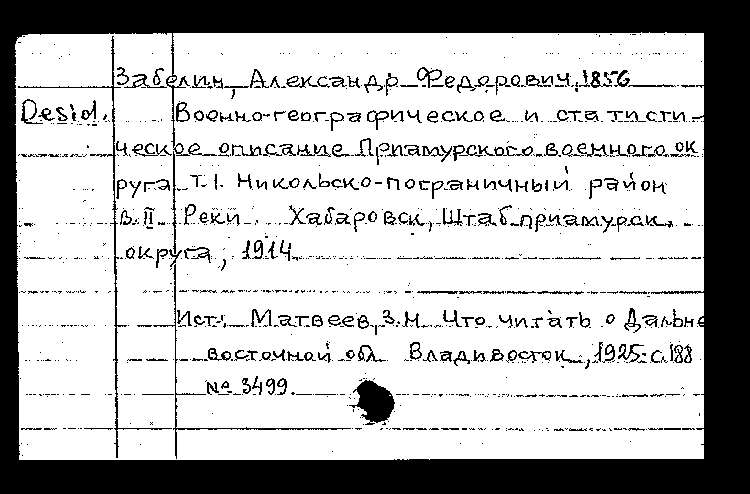 Забелин, Александр Федорович, 1856
Desid. Военно-географическое и статисти-
ческое описание Приамурского военного ок
руга Т.I. Никольско-пограничный район
В.II Реки. Хабаровск, Штаб приамурск.
округа, 1914.
Ист.: Матвеев, З.М. Что читать о Дальне
восточной обл. Владивосток, 1925. с.188
№ 3499.